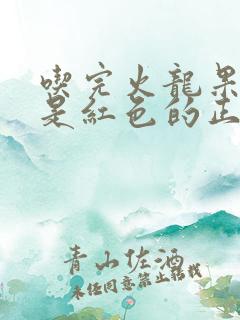 喫完火龍果
是紅色的正
青山佐酒
未經同意禁止轉載